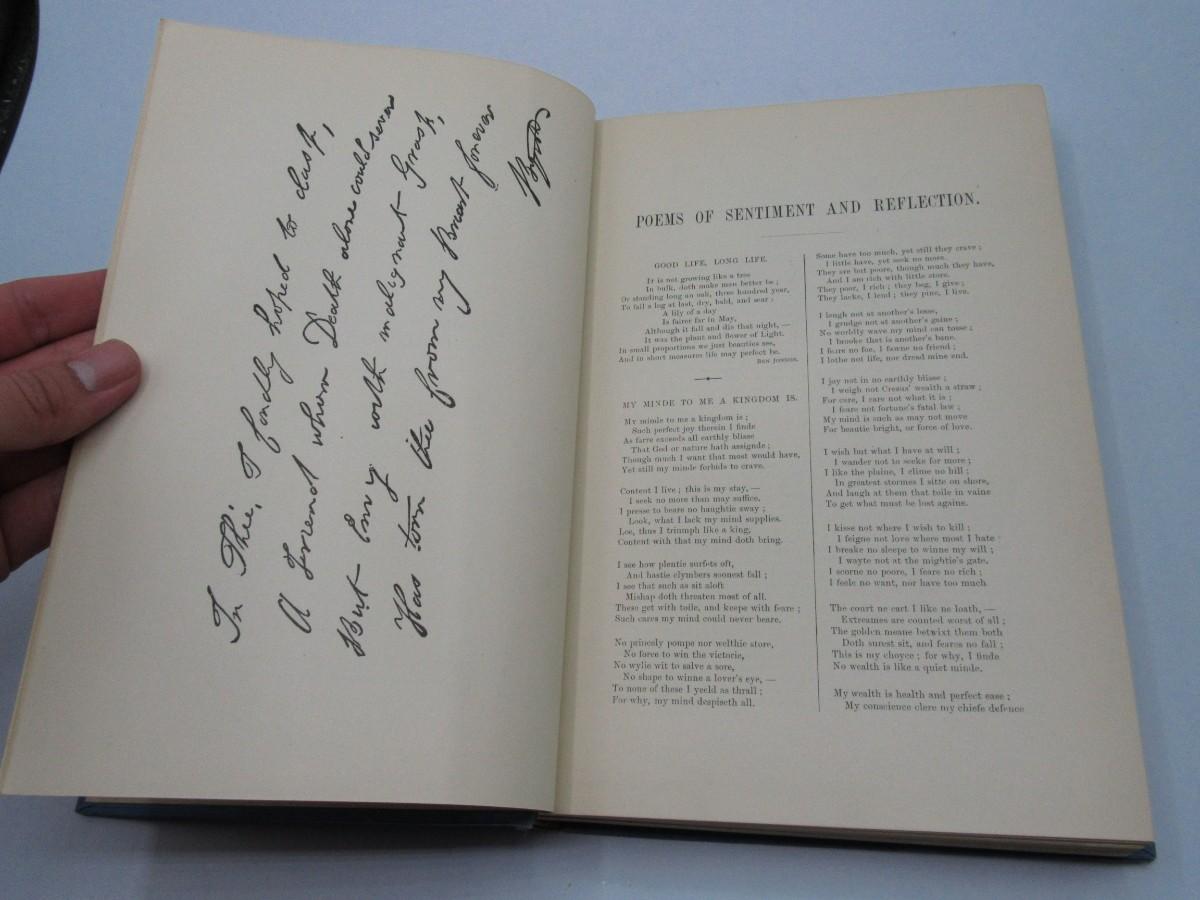 In Thee, I fondly hoped to clasp,
A Friend whom Death alone could sever
But Envy with malignant Grasp,
Has torn thee from my Breast forever
Byron
POEMS OF SENTIMENT AND REFLECTION.
GOOD LIFE, LONG LIFE.
It is not growing like a tree
In bulk, doth make man better be;
Or standing long an oak, three hundred year,
To fall a log at last, dry, bald, and sear:
A lily of a day
Is fairer far in May,
Although it fall and die that night, —
It was the plant and flower of Light.
In small proportions we just beauties see,
And in short measures life may perfect be.
BEN JONSON.
MY MINDE TO ME A KINGDOM IS.
My minde to me a kingdom is;
Such perfect joy therein I finde
As farre exceeds all earthly blisse
That God or nature hath assignde;
Though much I want that most would have,
Yet still my minde forbids to crave.
Content I live; this is my stay, —
I seek no more than may suffice.
I presse to beare no haughtie sway;
Look, what I lack my mind supplies.
Loe, thus I triumph like a king,
Content with that my mind doth bring.
I see how plentie surfets oft,
And hastie clymbers soonest fall;
I see that such as sit aloft
Mishap doth threaten most of all.
These get with toile, and keepe with feare;
Such cares my mind could never beare.
No princely pompe nor welthie store,
No force to win the victorie,
No wylie wit to salve a sore,
No shape to winne a lover's eye, —
To none of these I yeeld as thrall;
For why, my mind despiseth all.
Some have too much, yet still they crave;
I little have, yet seek no more.
They are but poore, though much they have,
And I am rich with little store.
They poor, I rich; they beg, I give;
They lacke, I lend; they pine, I live.
I laugh not at another's losse,
I grudge not at another's gaine;
No worldly wave my mind can tosse;
I brooke that is another's bane.
I feare no foe, I fawne no friend;
I lothe not life, nor dread mine end.
I joy not in no earthly blisse;
I weigh not Cresus' wealth a straw;
For care, I care not what it is;
I feare not fortune's fatal law;
My mind is such as may not move
For beautie bright, or force of love.
I wish but what I have at will;
I wander not to seeke for more;
I like the plaine, I clime no hill;
In greatest stormes I sitte on shore,
And laugh at them that toile in vaine
To get what must be lost againe.
I kisse not where I wish to kill;
I feigne not love where most I hate
I breake no sleepe to winne my will;
I wayte not at the mightie's gate.
I scorne no poore, I feare no rich;
I feele no want, nor have too much
The court ne cart I like ne loath, —
Extreames are counted worst of all;
The golden meane betwixt them both
Doth surest sit, and feares no fall;
This is my choyce; for why, I finde
No wealth is like a quiet minde.
My wealth is health and perfect ease;
My conscience clere my chiefe defence